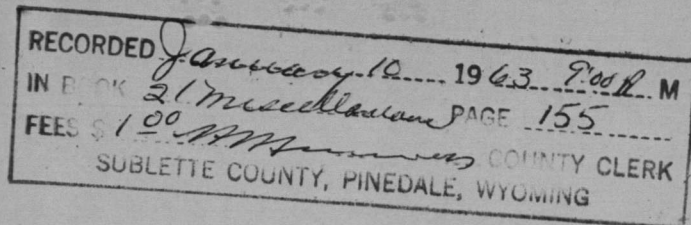 RECORDED January 10 1963 9:00 A M
IN BOOK 21 Miscellaneous PAGE 155
FEES $ 1 00 COUNTY CLERK
SUBLETTE COUNTY, PINEDALE, WYOMING